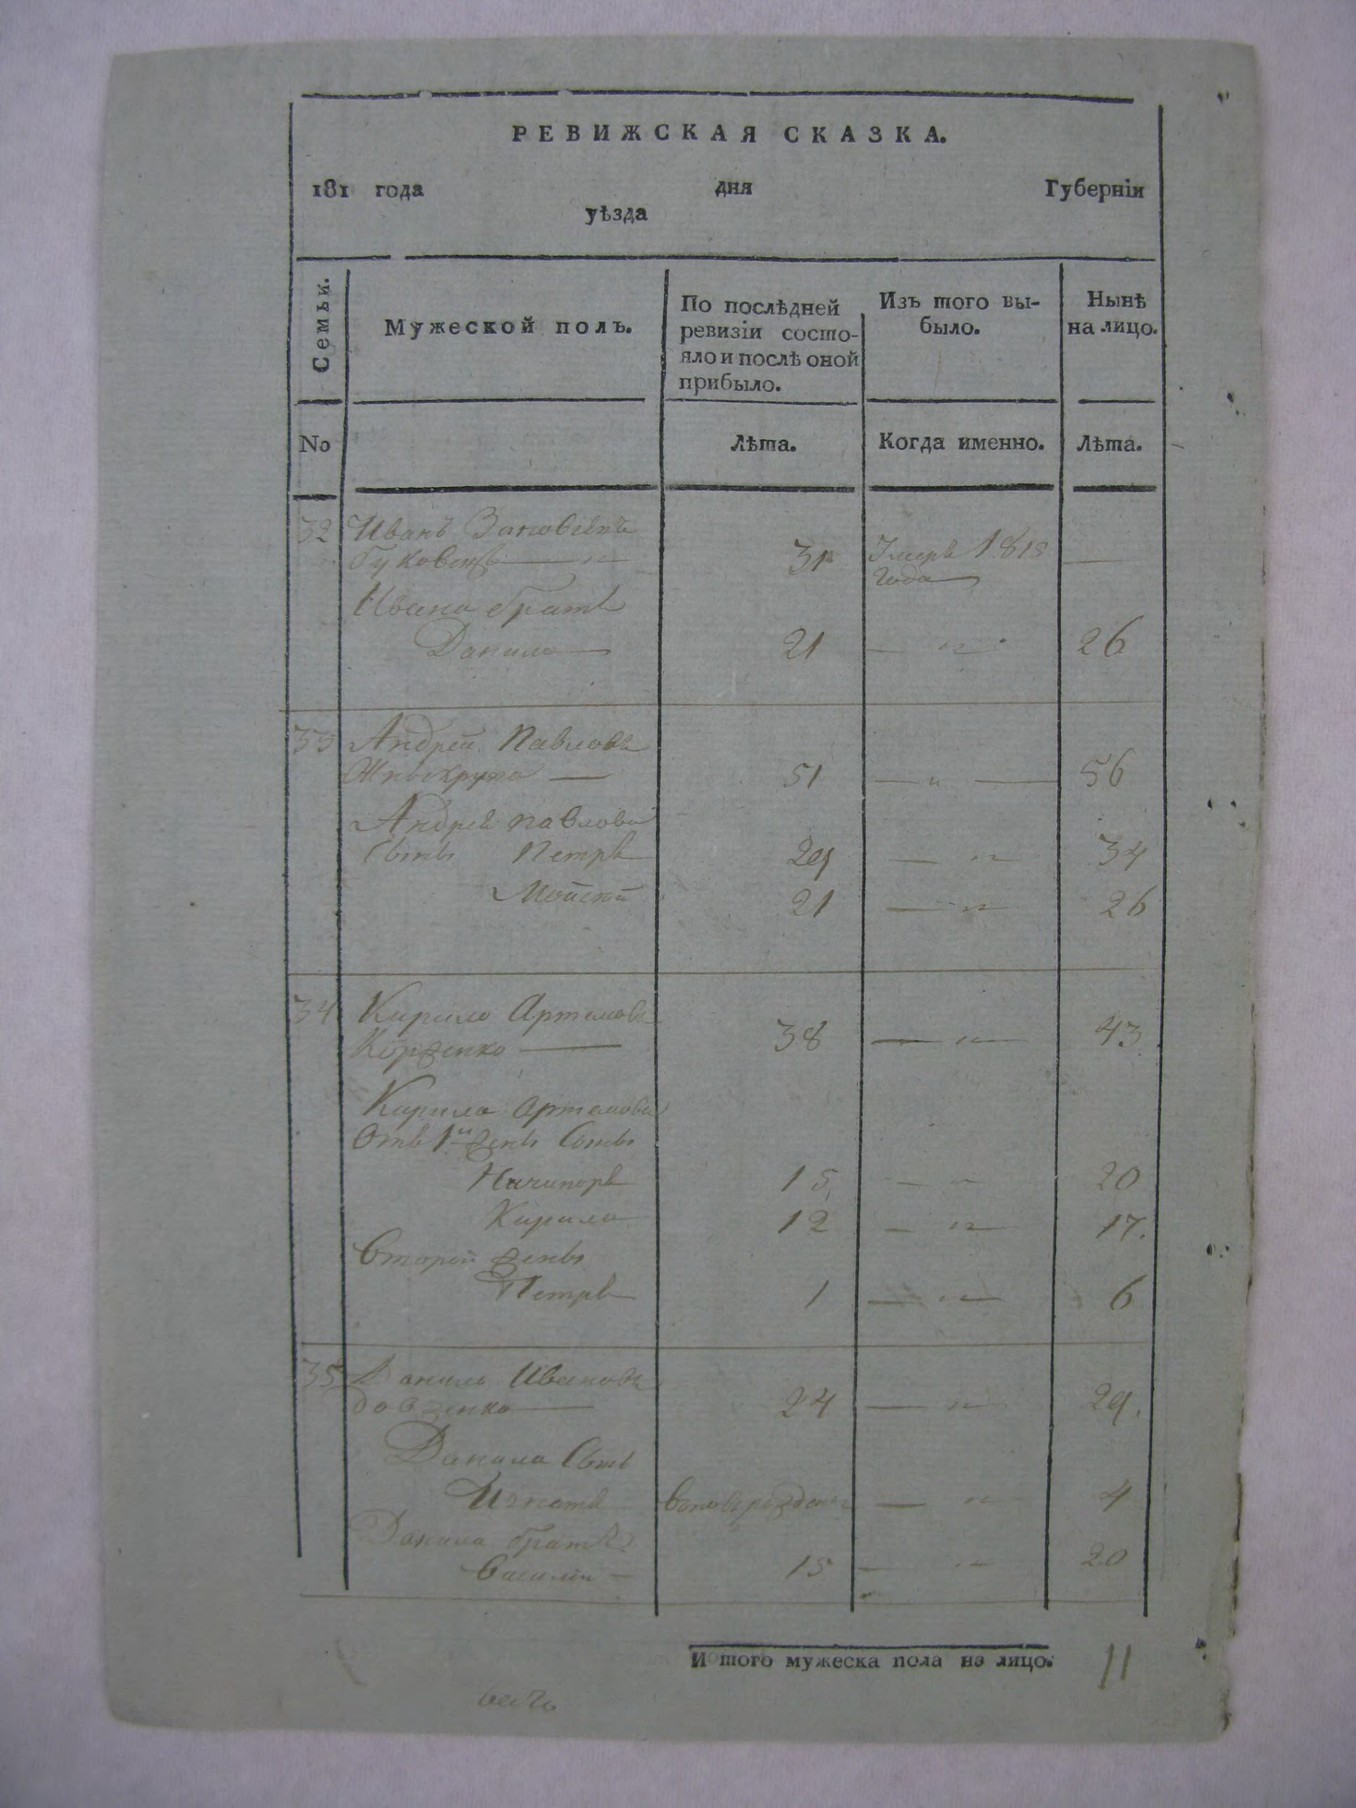 РЕВИЖСКАЯ СКАЗКА.
181 года дня Губерніи
уѣзда
Семьи.
Мужеской полъ.
По послѣдней
ревизіи состо-
яло и послѣ оной
прибыло.
Изъ того вы-
было.
Нынѣ
на лицо.
No
Лѣта.
Когда именно.
Лѣта.
32 Иванъ
31 Умеръ 181
года
Ивана братъ
Данило 21 26
33 Андрей Павловъ
51 56
Андрея Павлова
Сынъ Петръ 29 34
Мойсей 21 26
34 Кирило Артемовъ
38 43
Кирила Артемова
Отъ 1й жены Сыны
Ничипоръ 15 20
Кирило 12 17.
Второй жены
Петръ 1 6
35 Данило Ивановъ
Довженко 24 29.
Данила Сынъ
Игнатъ вновьрожденъ 4
Данила братъ
Василій 15 20
Итого мужеска пола на лицо. 11